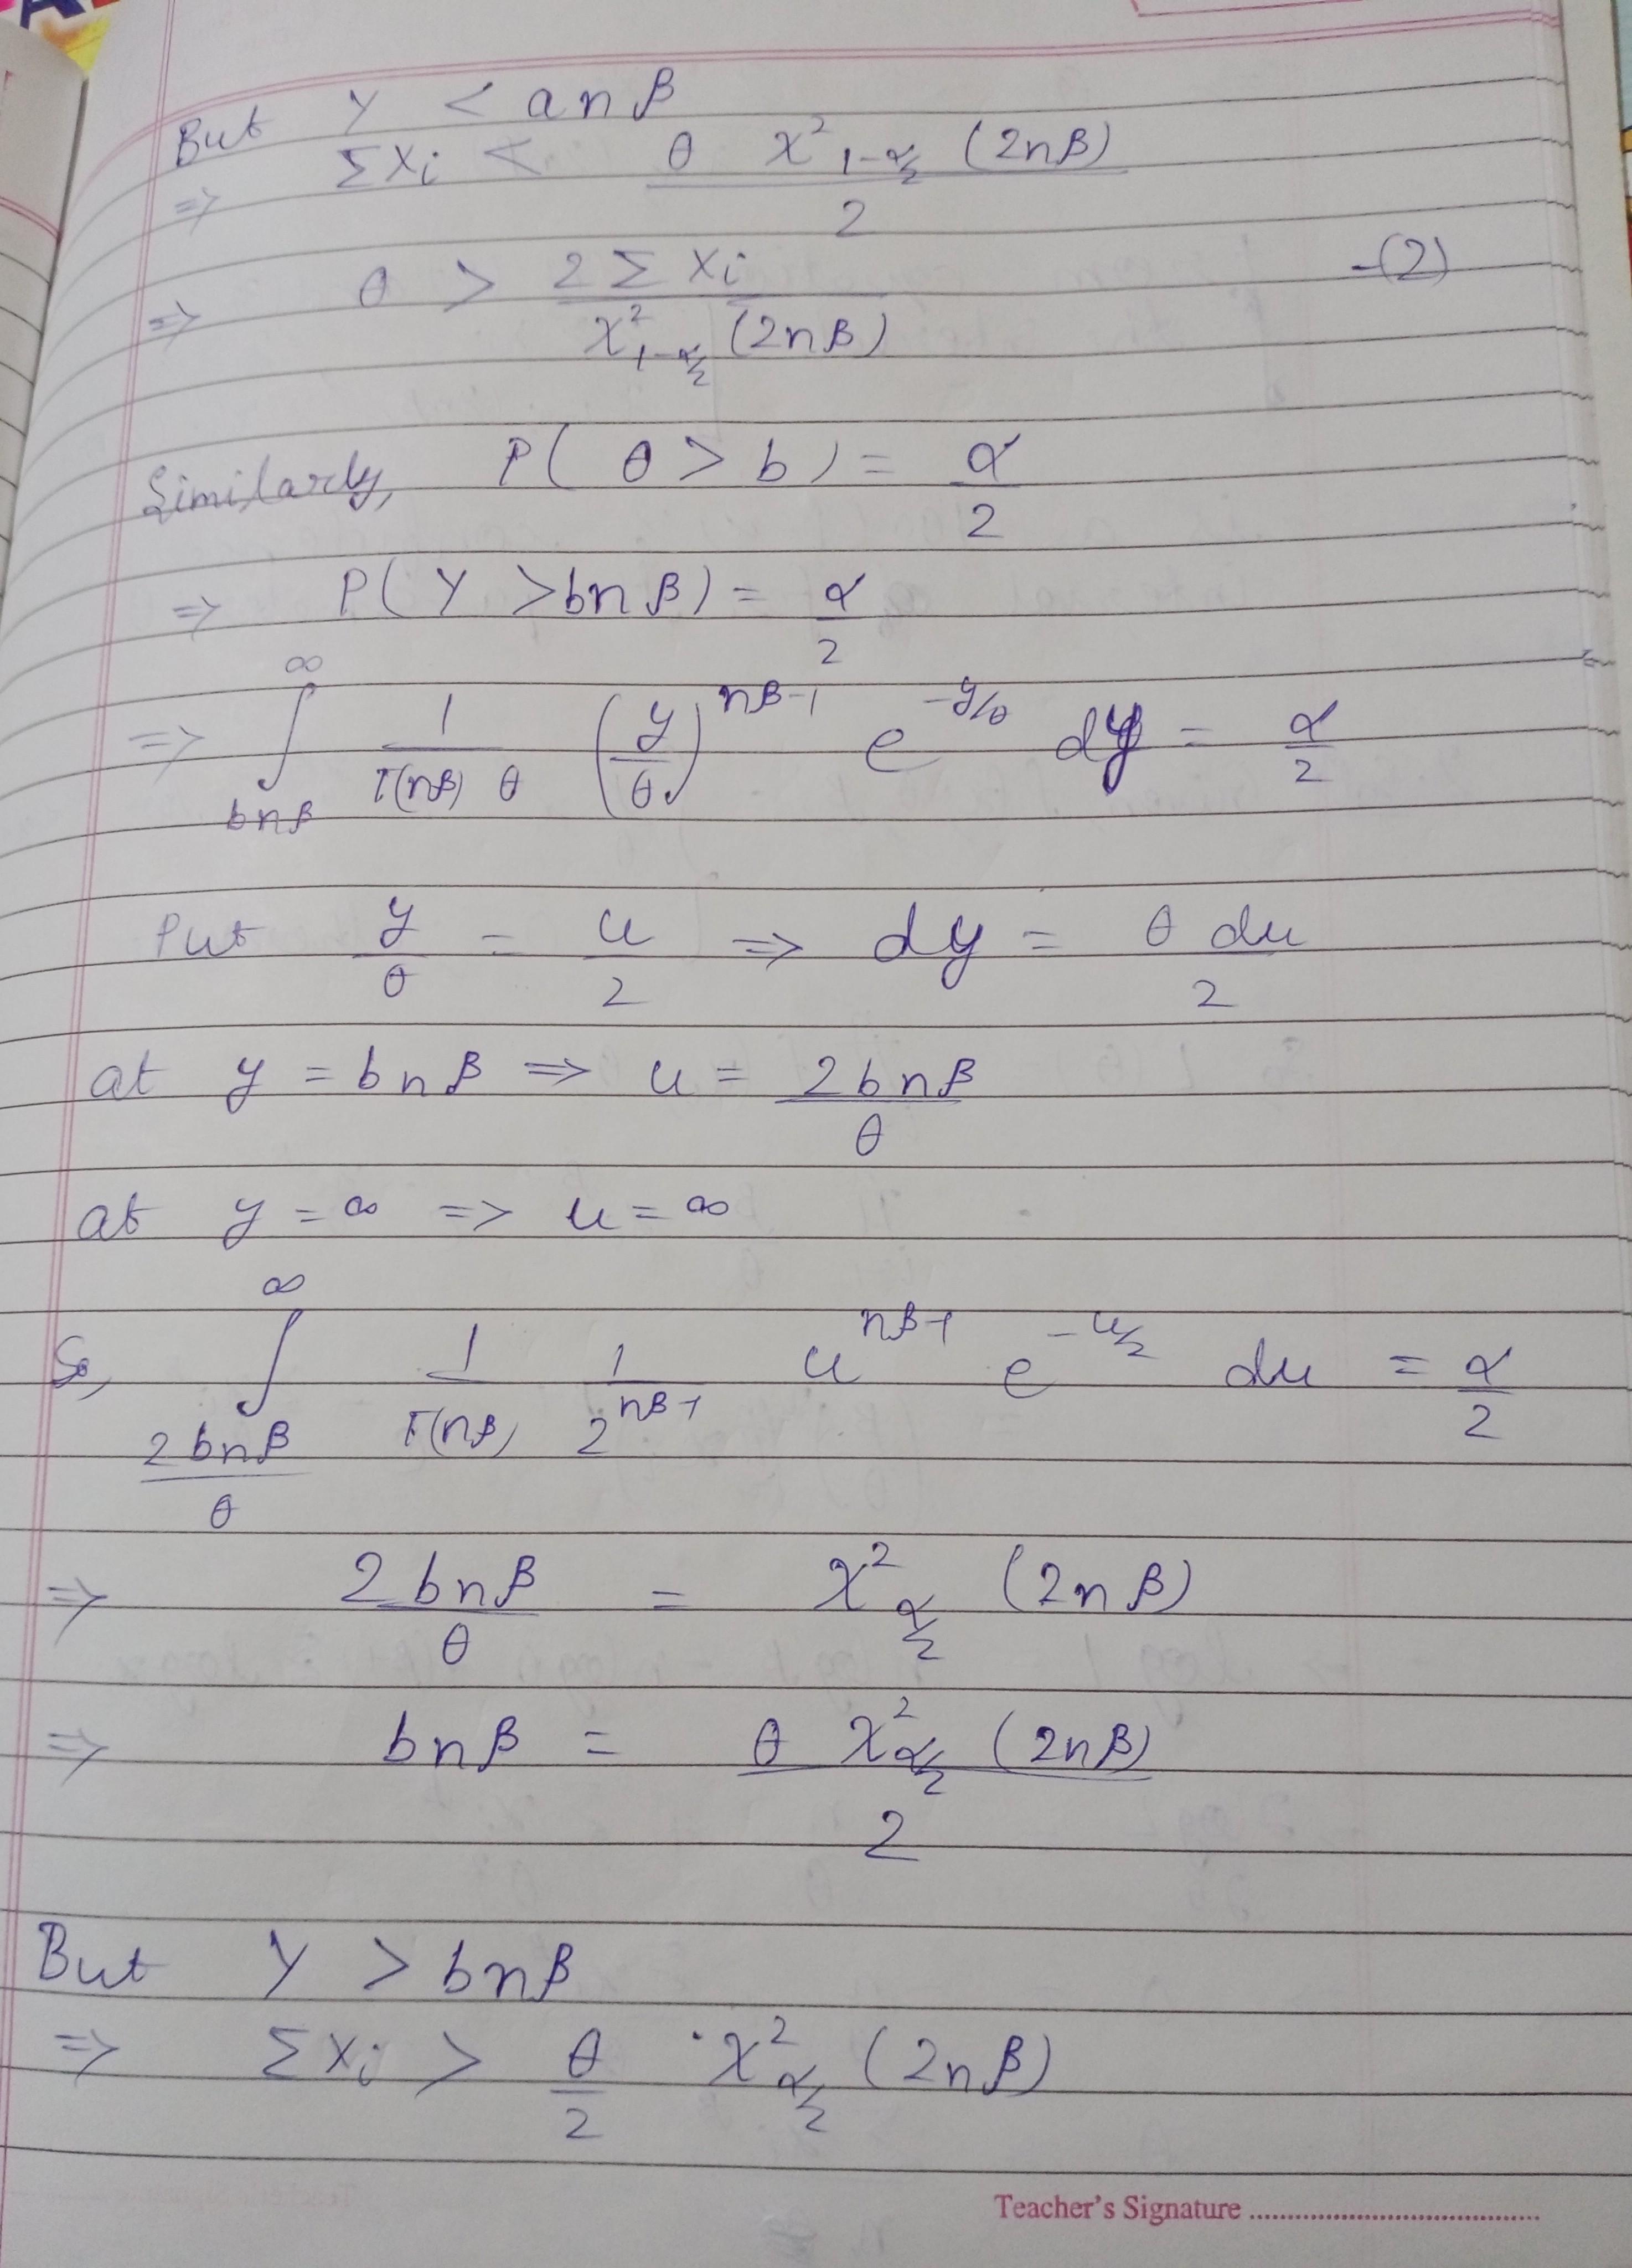 But Y < anβ
=> Σxi < θ χ²₁₋α/₂ (2nβ) / 2
=> θ > 2 Σ xi / χ²₁₋α/₂ (2nβ) -(2)
Similarly, P( θ > b ) = α/2
=> P( Y > bnβ ) = α/2
=> ∫_{bnβ}^{∞} 1/(Γ(nβ) θ) (y/θ)^{nβ-1} e^{-y/θ} dy = α/2
Put y/θ = u/2 => dy = θ du/2
at y = bnβ => u = 2bnβ/θ
at y = ∞ => u = ∞
So, ∫_{2bnβ/θ}^{∞} 1/Γ(nβ) 1/2^{nβ-1} u^{nβ-1} e^{-u/2} du = α/2
=> 2bnβ/θ = χ²_{α/2} (2nβ)
=> bnβ = θ χ²_{α/2} (2nβ) / 2
But Y > bnβ
=> Σxi > θ/2 · χ²_{α/2} (2nβ)
Teacher's Signature ........................................